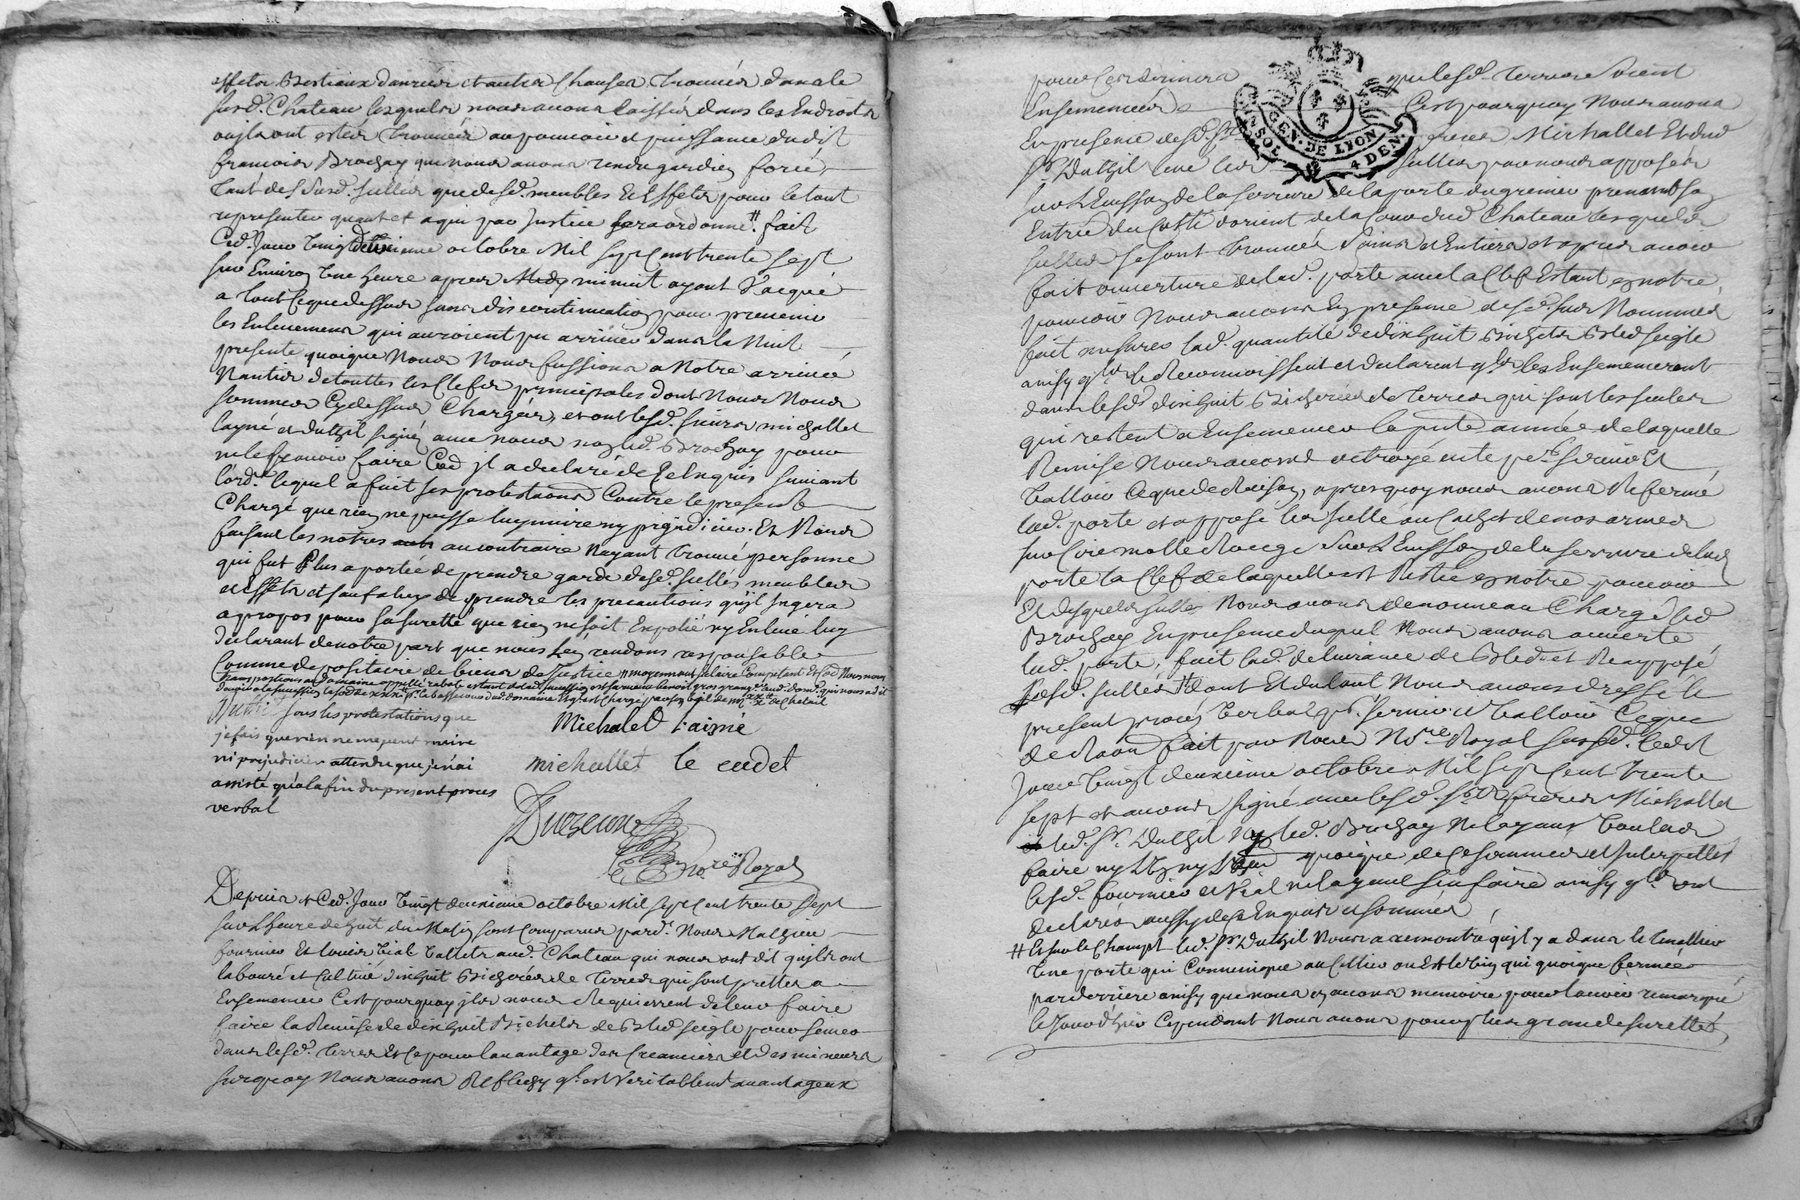 effets Bestiaux danrées et autres choses trouvés dans le
susd. Chateau lesquels nous avons laissés dans les Endroits
ou ils ont estés trouvés au pouvoir et puissance dudit
francois Brochay qui nous avons rendu gardien forcé
tant des susd. sullés que desd. meubles et Effets pour le tout
representer quant et a qui par Justice sera ordonné # fait
Ced. Jour vingt deuxieme octobre Mil sept Cent trente sept
sur Environ une heure apres minuit ayant vacqué
a tout Ceque dessus sans discontinuation pour prevenir
les Enlevemens qui auroient pu arriver dans la Nuit
presente quoique Nous Nous fussions a Notre arrivée
Nantis de touttes les Clefs principales dont Nous Nous
sommes Cydessus Chargés, et ont lesd. sieurs michallet
layné et duthil signé avec nous non led. Brochay pour
ne le scavoir faire Ced jl a declaré de Ce Enquis suivant
lord. lequel a fait ses protestations Contre le present
Chargé que rien ne puisse luy nuire ny prejudicier. Et Nous
faisant les notres au contraire Nayant trouvé personne
qui fut Plus a portée de prendre garde desd. sullés meubles
et effets et sauf a luy de prendre les precautions quil Jugera
apropos pour sa sureté que rien ne soit Enpolié ny Enlevé luy
declarant de notre part que nous Len rendons responsable
Comme depositaire de biens de Justice # moyennant salaire Competant Et Ced Nous nous
sous les protestations que
je fais que rien ne me peut nuire
ni prejudicier attendu que je n'ai
assisté qu'a la fin du present proces
verbal
Michaled l'aisné
michallet le cadet
No.re Royal
Depuis et Ced. Jour vingt deuxieme octobre Mil sept Cent trente sept
sur L heure de huit du Matin sont Comparus pard. Nous Mathieu
fournier Et louis vial valets aud. Chateau qui nous ont dit quils ont
labouré et Cultivé dixhuit Bicherées de Terres qui sont prettes a
Ensemencer Cest pourquoy jls nous Requierent de leur faire
faire la Remise de dixhuit Bichets de Bled seigle pour semer
dans lesd. terres Et Ce pour lavantage des Creanciers et des mineurs
surquoy Nous avons Reflechy q. est veritablemt avantageux
pour Ces derniers que lesd. terres soient
Ensemencées Cest pourquoy Nous avons
En presence desd. Srs freres Michallet Et dud
Sr. Duthil Levé les sullés par nous apposés
sur L Eusson de la serrure de la porte du grenier prenant son
Entrée du Costé dorient de la Cour dud Chateau lesquels
sullés se sont trouvés sains et Entiers et apres avoir
fait ouverture de lad. porte avec la Clef Estant en notre
pouvoir Nous avons En presence desd. sus Nommés
fait mesurer lad. quantité de dixhuit Bichets Bled seigle
ainsy q. ils le Reconnoissent et declarent q. ils les Ensemenceront
dans lesd. dixhuit Bicherées de Terres qui sont les seules
qui restent a Ensemencer la pnte année de laquelle
Remise Nous avons octroyé acte pr. servir Et
valloir Ceque de Raison, apres quoy nous avons Refermé
lad. porte et apposé les sullé au Cachet de nos armes
sur Cire molle Rouge sur L Eusson de la serrure de lad
porte la Clef de laquelle est Restée en notre pouvoir
Et desquels sullés Nous avons de nouveau Chargé led
Brochay En presence duquel Nous avons ouverte
lad. porte, fait lad. delivrance de Bled et Reapposé
lesd. sullés # dont Et du tout Nous avons dressé le
present procés verbal pr. servir et valloir Ceque
de Raon fait par Nous No.re Royal sussd. Ledit
Jour vingt deuxieme octobre Mil sept Cent trente
sept et avons signé avec lesd. Srs freres Michallet
led. Sr. Duthil non led. Brochay Ne layant voulu
faire ny quoique de Ce sommés et Interpellés
lesd. fournier et vial ne layant sceu faire ainsy q. ils ont
declarés aussy des Enquis et sommés
# Et sur le Champt led. Sr Duthil Nous a remontré quil y a dans le
une porte qui Communique au Cellier qui quoique fermée
parderriere ainsy que nous en avons memoire pour lavoir remarqué
le Jour dhier Cependant Nous avons pour plus grande sureté
GEN. DE LYON
SOL
4 DEN.